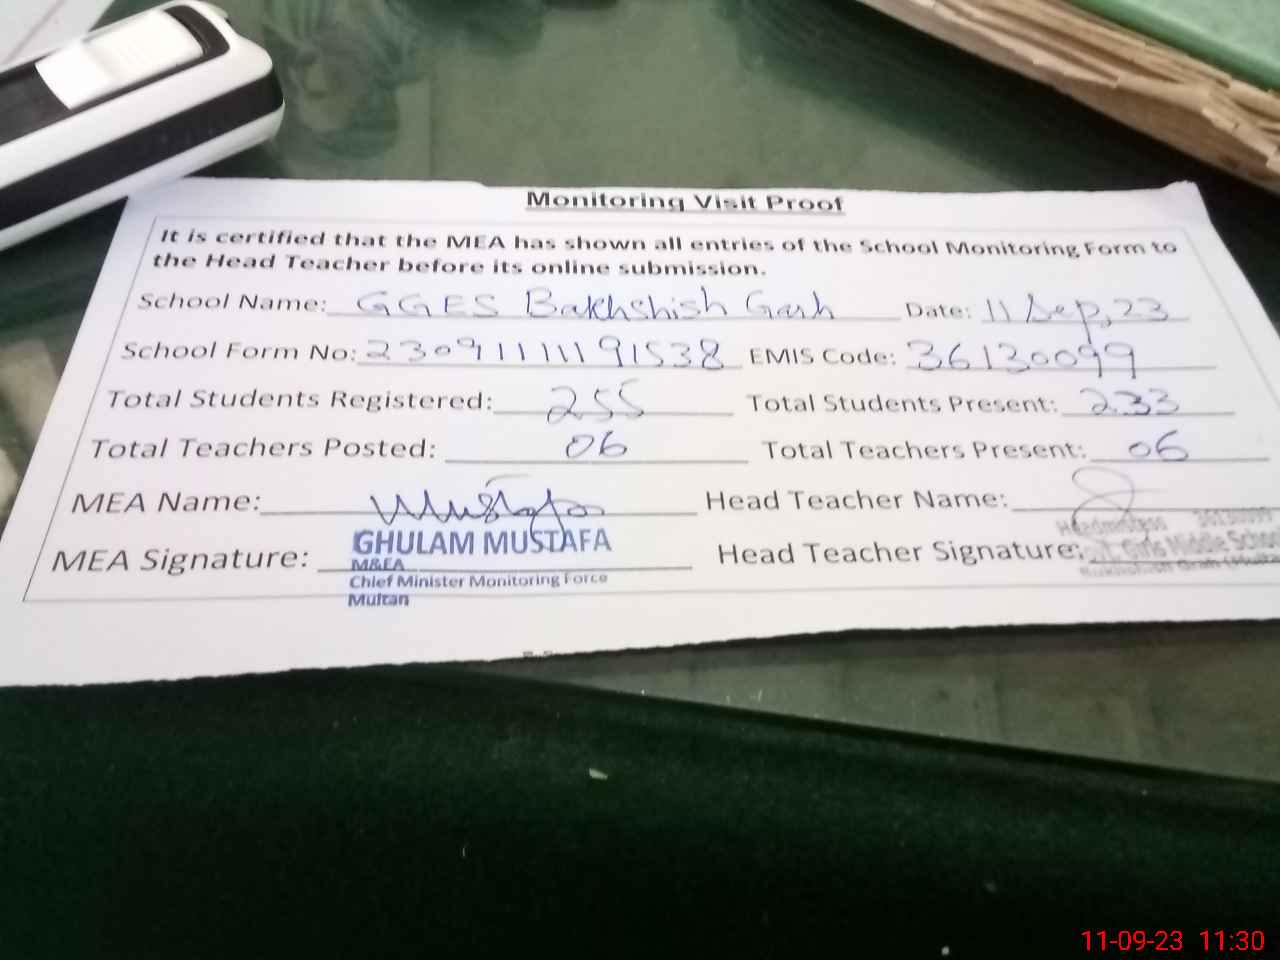 Monitoring Visit Proof
It is certified that the MEA has shown all entries of the School Monitoring Form to
the Head Teacher before its online submission.
School Name: GGES Bakhshish Garh Date: 11 Sep, 23
School Form No: 23091111191538 EMIS Code: 36130099
Total Students Registered: 255 Total Students Present: 233
Total Teachers Posted: 06 Total Teachers Present: 06
MEA Name: Mustafa Head Teacher Name:
Headmistess 36130099
GHULAM MUSTAFA
MEA Signature: Head Teacher Signature: Girls Middle School
M&EA
Chief Minister Monitoring Force
Multan
11-09-23 11:30